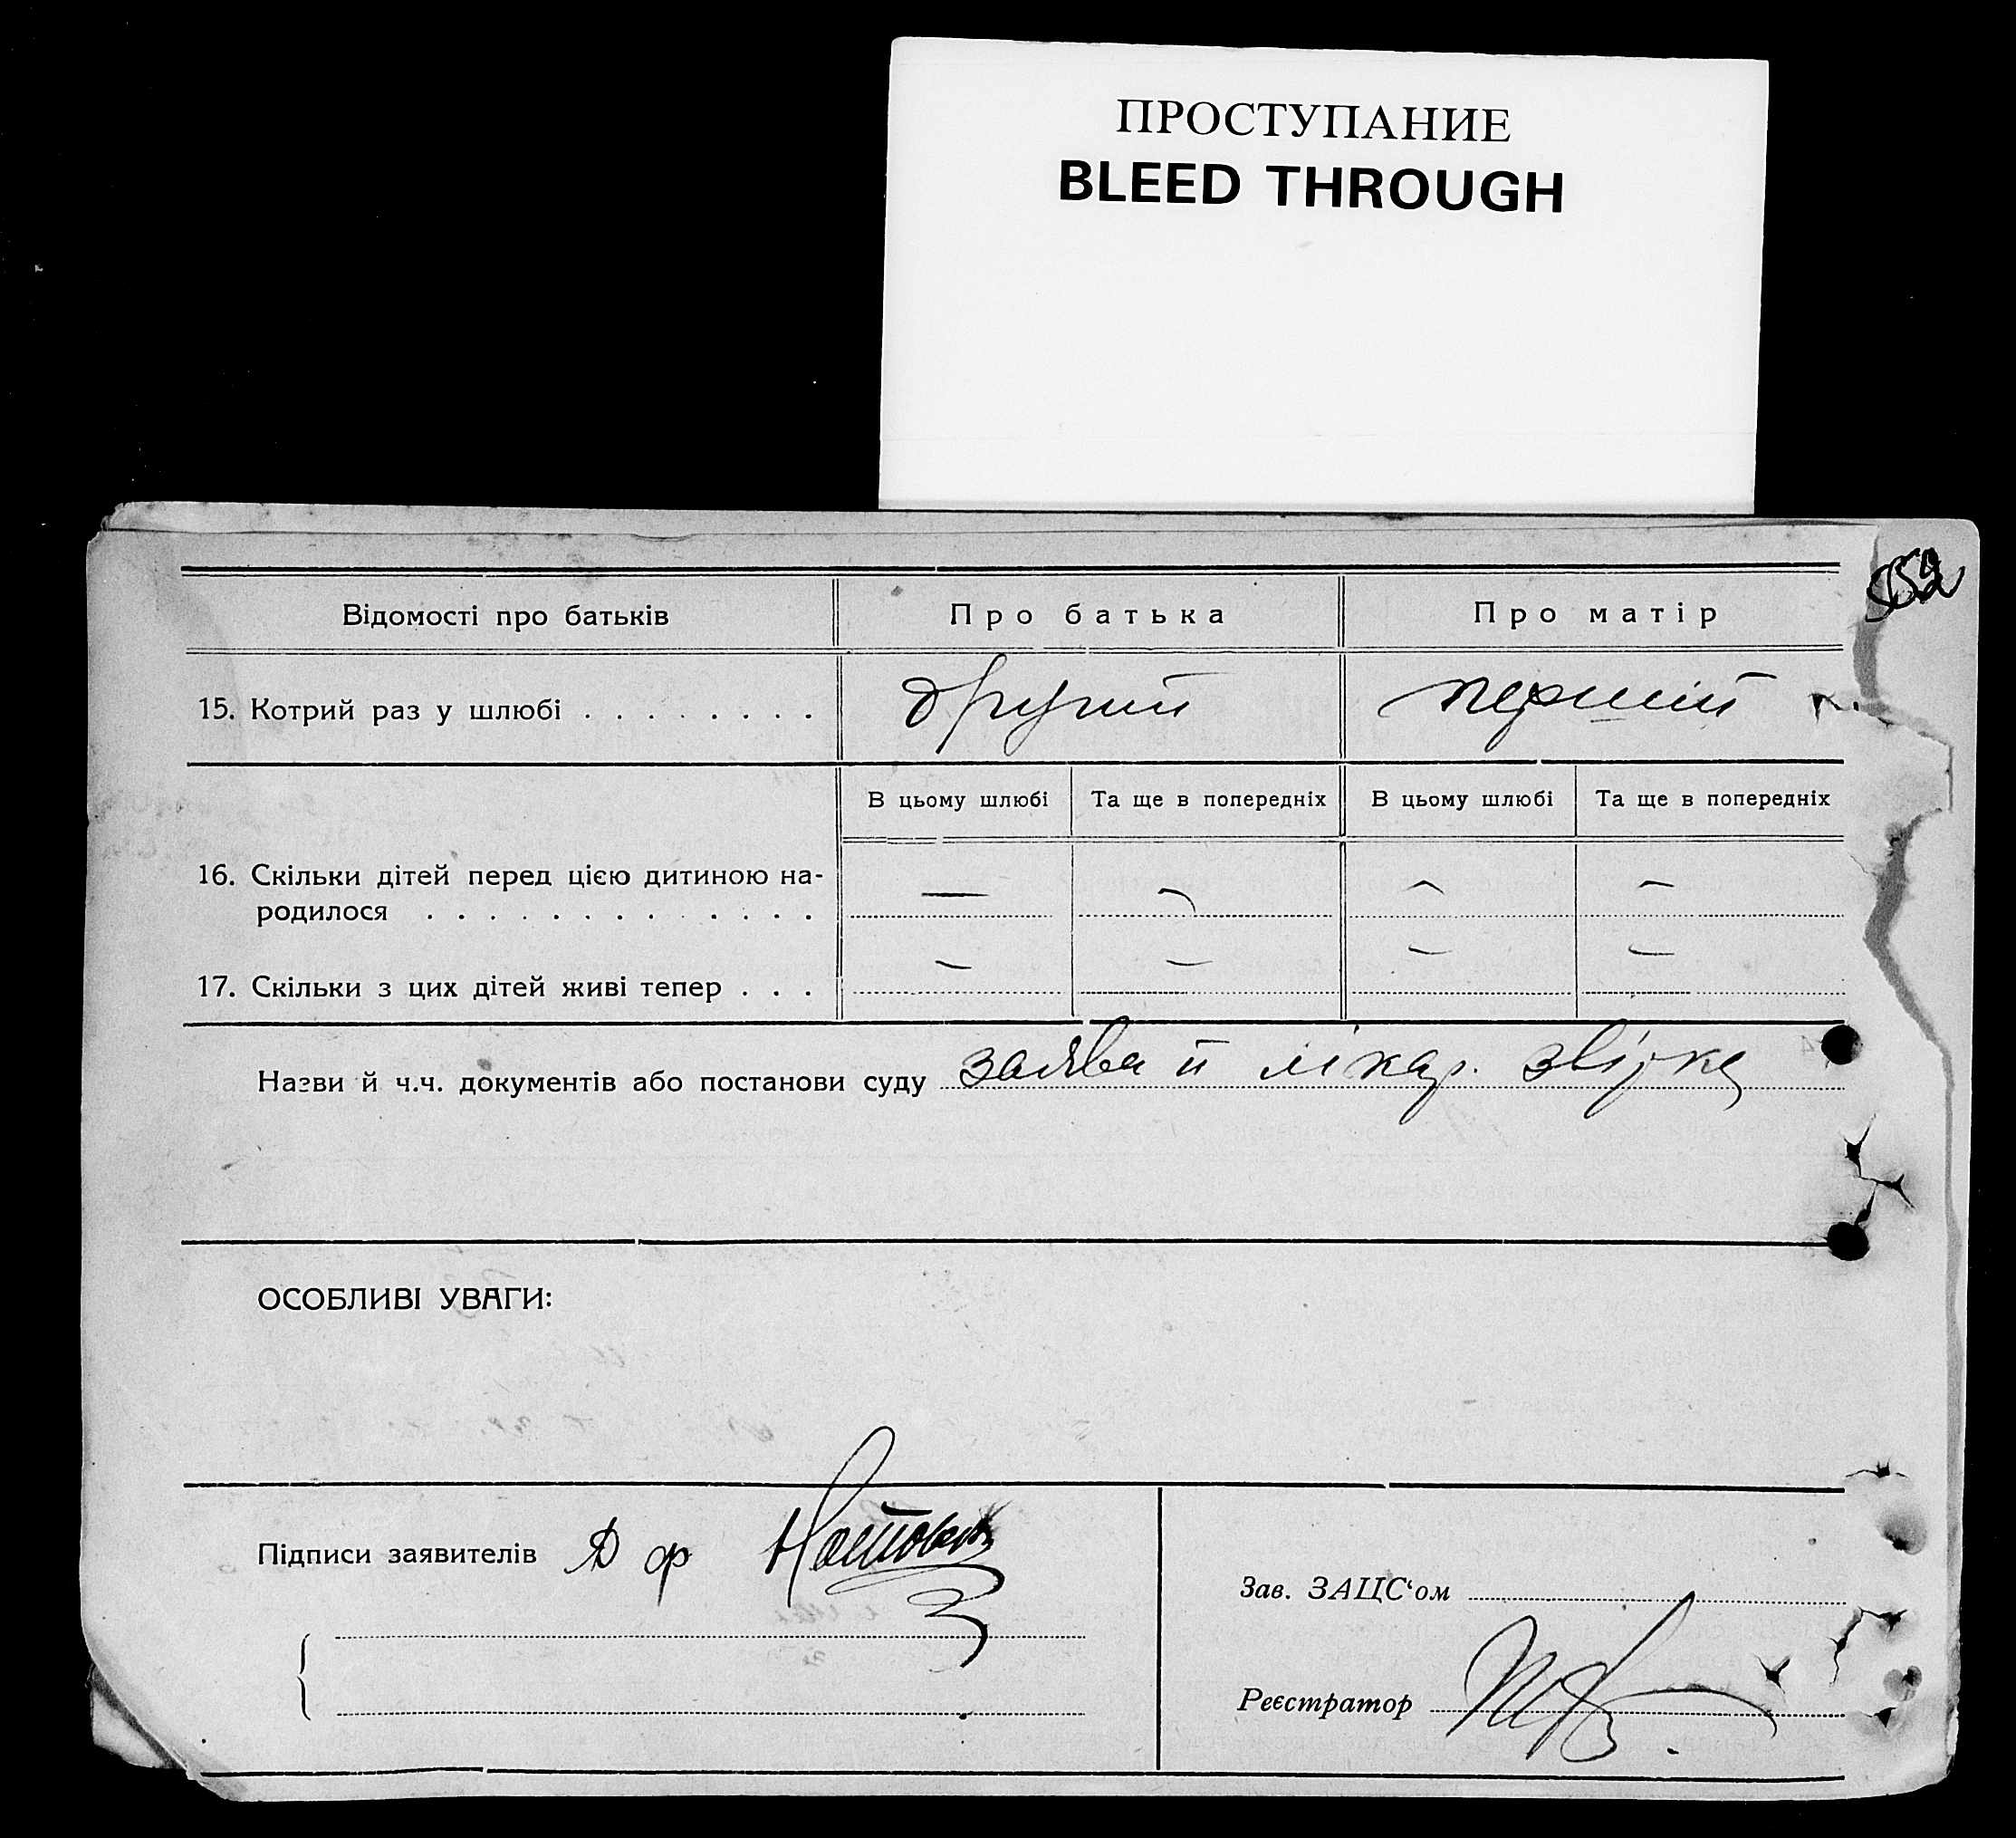 ПРОСТУПАНИЕ
BLEED THROUGH
Відомості про батьків Про батька Про матір
15. Котрий раз у шлюбі . . . . . . . . другий перший
В цьому шлюбі Та ще в попередніх В цьому шлюбі Та ще в попередніх
16. Скільки дітей перед цією дитиною на-
родилося . . . . . . . . . . . . . — — — —
17. Скільки з цих дітей живі тепер . . . — — — —
Назви й ч.ч. документів або постанови суду заява й лікар.
ОСОБЛИВІ УВАГИ:
Підписи заявителів
Зав. ЗАЦС‘ом
Реєстратор